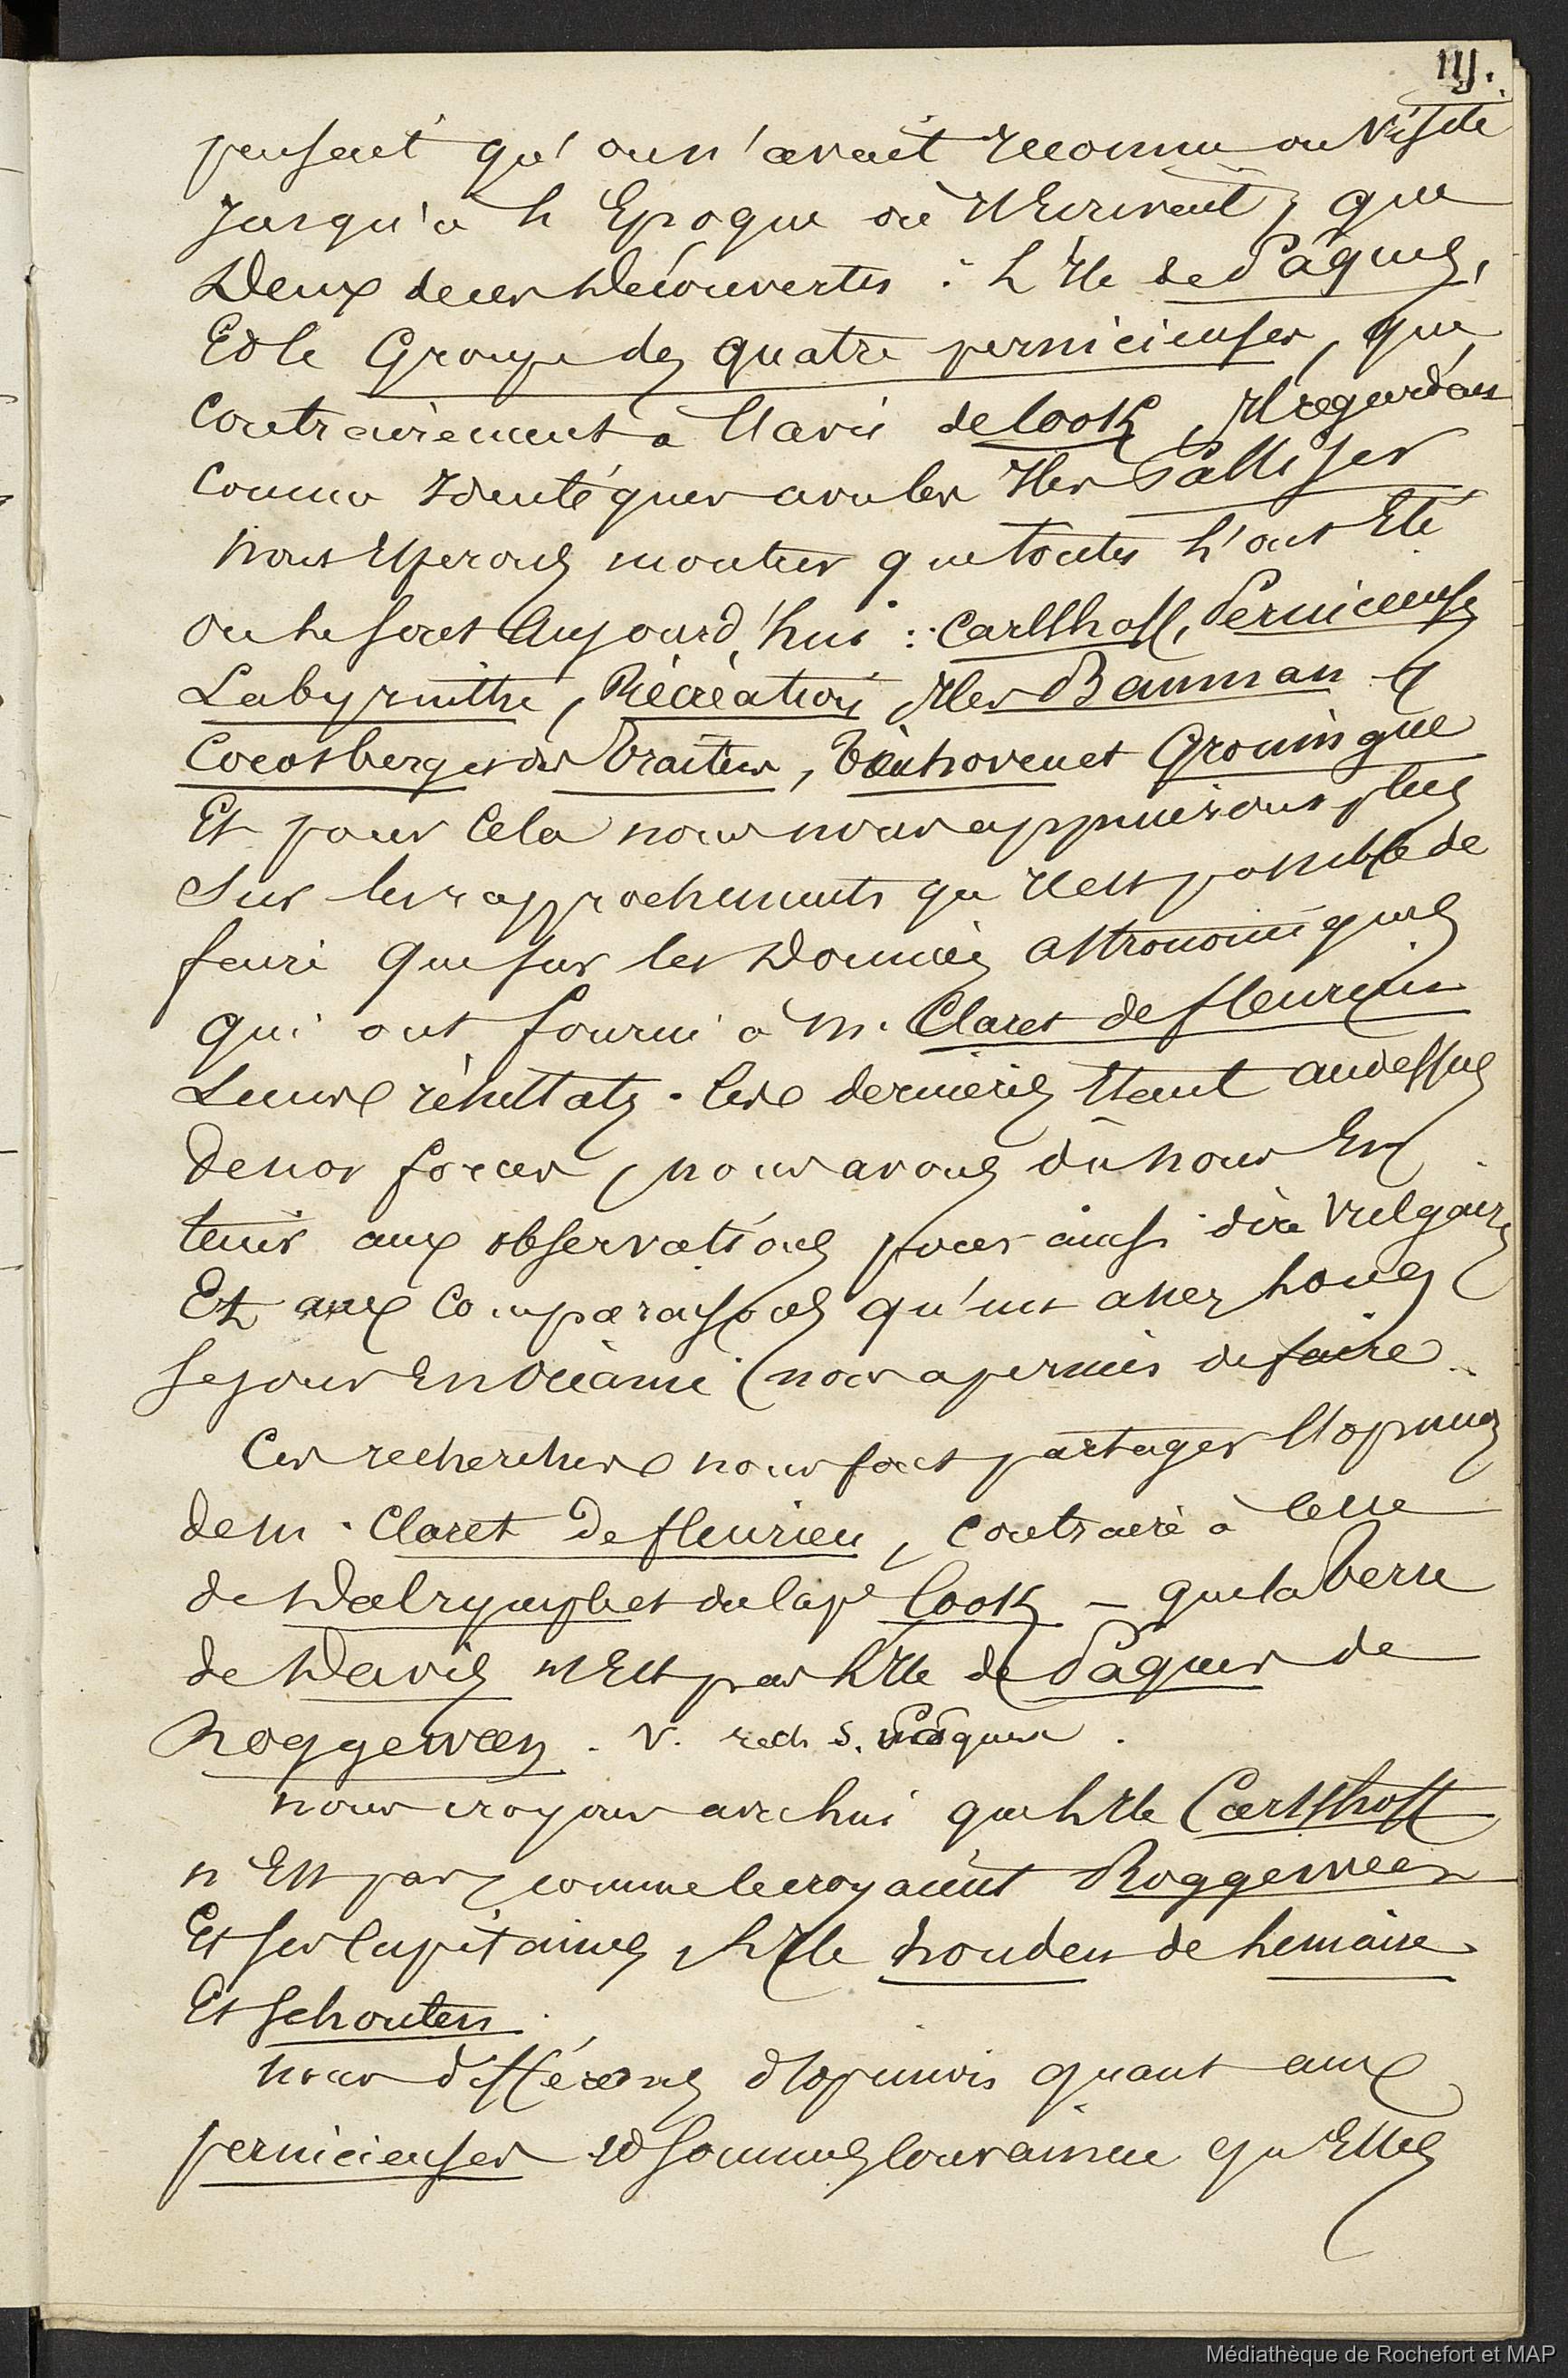 IIJ.
pensait qu'on n'avait reconnu ou visité
jusqu'à l'Epoque où Il Ecrivait, que
Deux de ces Découvertes : L'Ile de Pâques,
Et le Groupe des quatre pernicieuses, que,
Contrairement à l'avis de Cook, Il regardait
Comme Identiques avec les Iles Palliser
Nous Espérons montrer que toutes l'ont Eté
ou le sont Aujourd'hui : Carlshoff, Pernicieuses
Labyrinthe, Récréation, Iles Bauman &
Cocosberg et des Traitres, Tienhoven et Groningue
Et pour Cela nous nous appuierons plus
Sur les rapprochements qu'Il est possible de
faire que sur les Données astronomiques
qui ont fourni à M. Claret de fleurieu
Leurs résultats. Ces dernieres Etant audessus
de nos forces, nous avons dû nous En
tenir aux observations pour ainsi dire vulgaires
Et aux Comparaisons qu'un assez long
séjour En Océanie nous a permis de faire.
Ces recherches nous font partager l'opinion
de M. Claret de fleurieu, contraire à Celle
de Dalrymple et du Cape Cook – que la Terre
de Davis n'Est pas l'Ile de Pâques de
Roggeween. V. rech s. Pâques.
nous croyons avec lui que l'Ile Carlshoff
n'Est pas, comme le croyaient Roggeween
Et ses Capitaines, l'Ile honden de Lemaire
Et Schouten.
nous différons d'opinion quant aux
pernicieuses Et sommes Convaincu qu'Elles